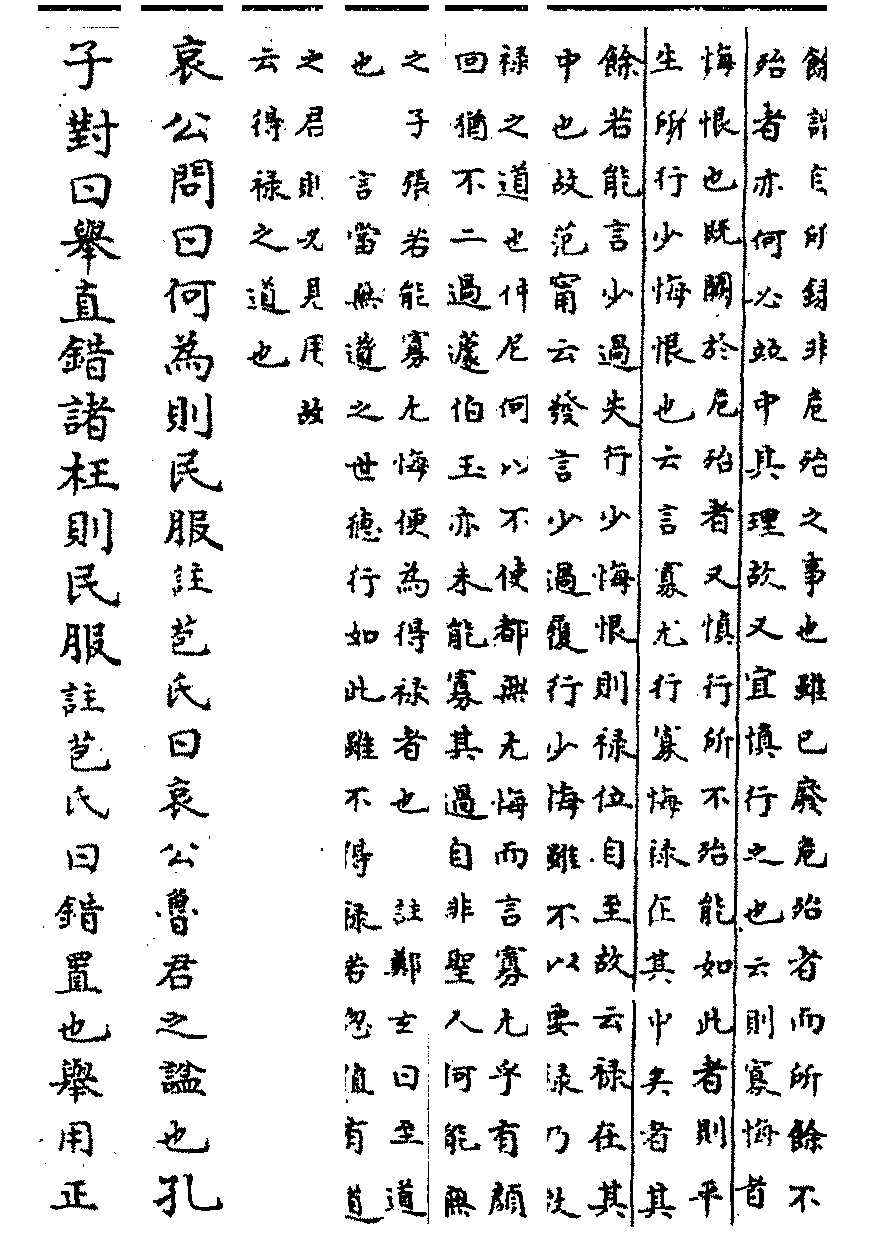 餘謂自所録非危殆之事也雖已廢危殆者而所餘不
殆者亦何必竝中其理故又宜慎行之也云則寡悔者
悔恨也既闕於危殆者又慎行所不殆能如此者則平
生所行少悔恨也云言寡尤行寡悔禄在其中矣者其
餘若能言少過失行少悔恨則禄位自至故云禄在其
中也故范甯云發言少過履行少悔雖不以要禄乃致
禄之道也仲尼何以不使都無尤悔而言寡尤乎有顔
回猶不二過蘧伯玉亦未能寡其過自非聖人何能無
之 子張若能寡尤悔便為得禄者也 註鄭玄曰至道
也 言當無道之世德行如此雖不得禄若忽值有道
之君則必見用故
云得禄之道也
哀公問曰何為則民服註苞氏曰哀公魯君之謚也孔
子對曰舉直錯諸枉則民服註苞氏曰錯置也舉用正